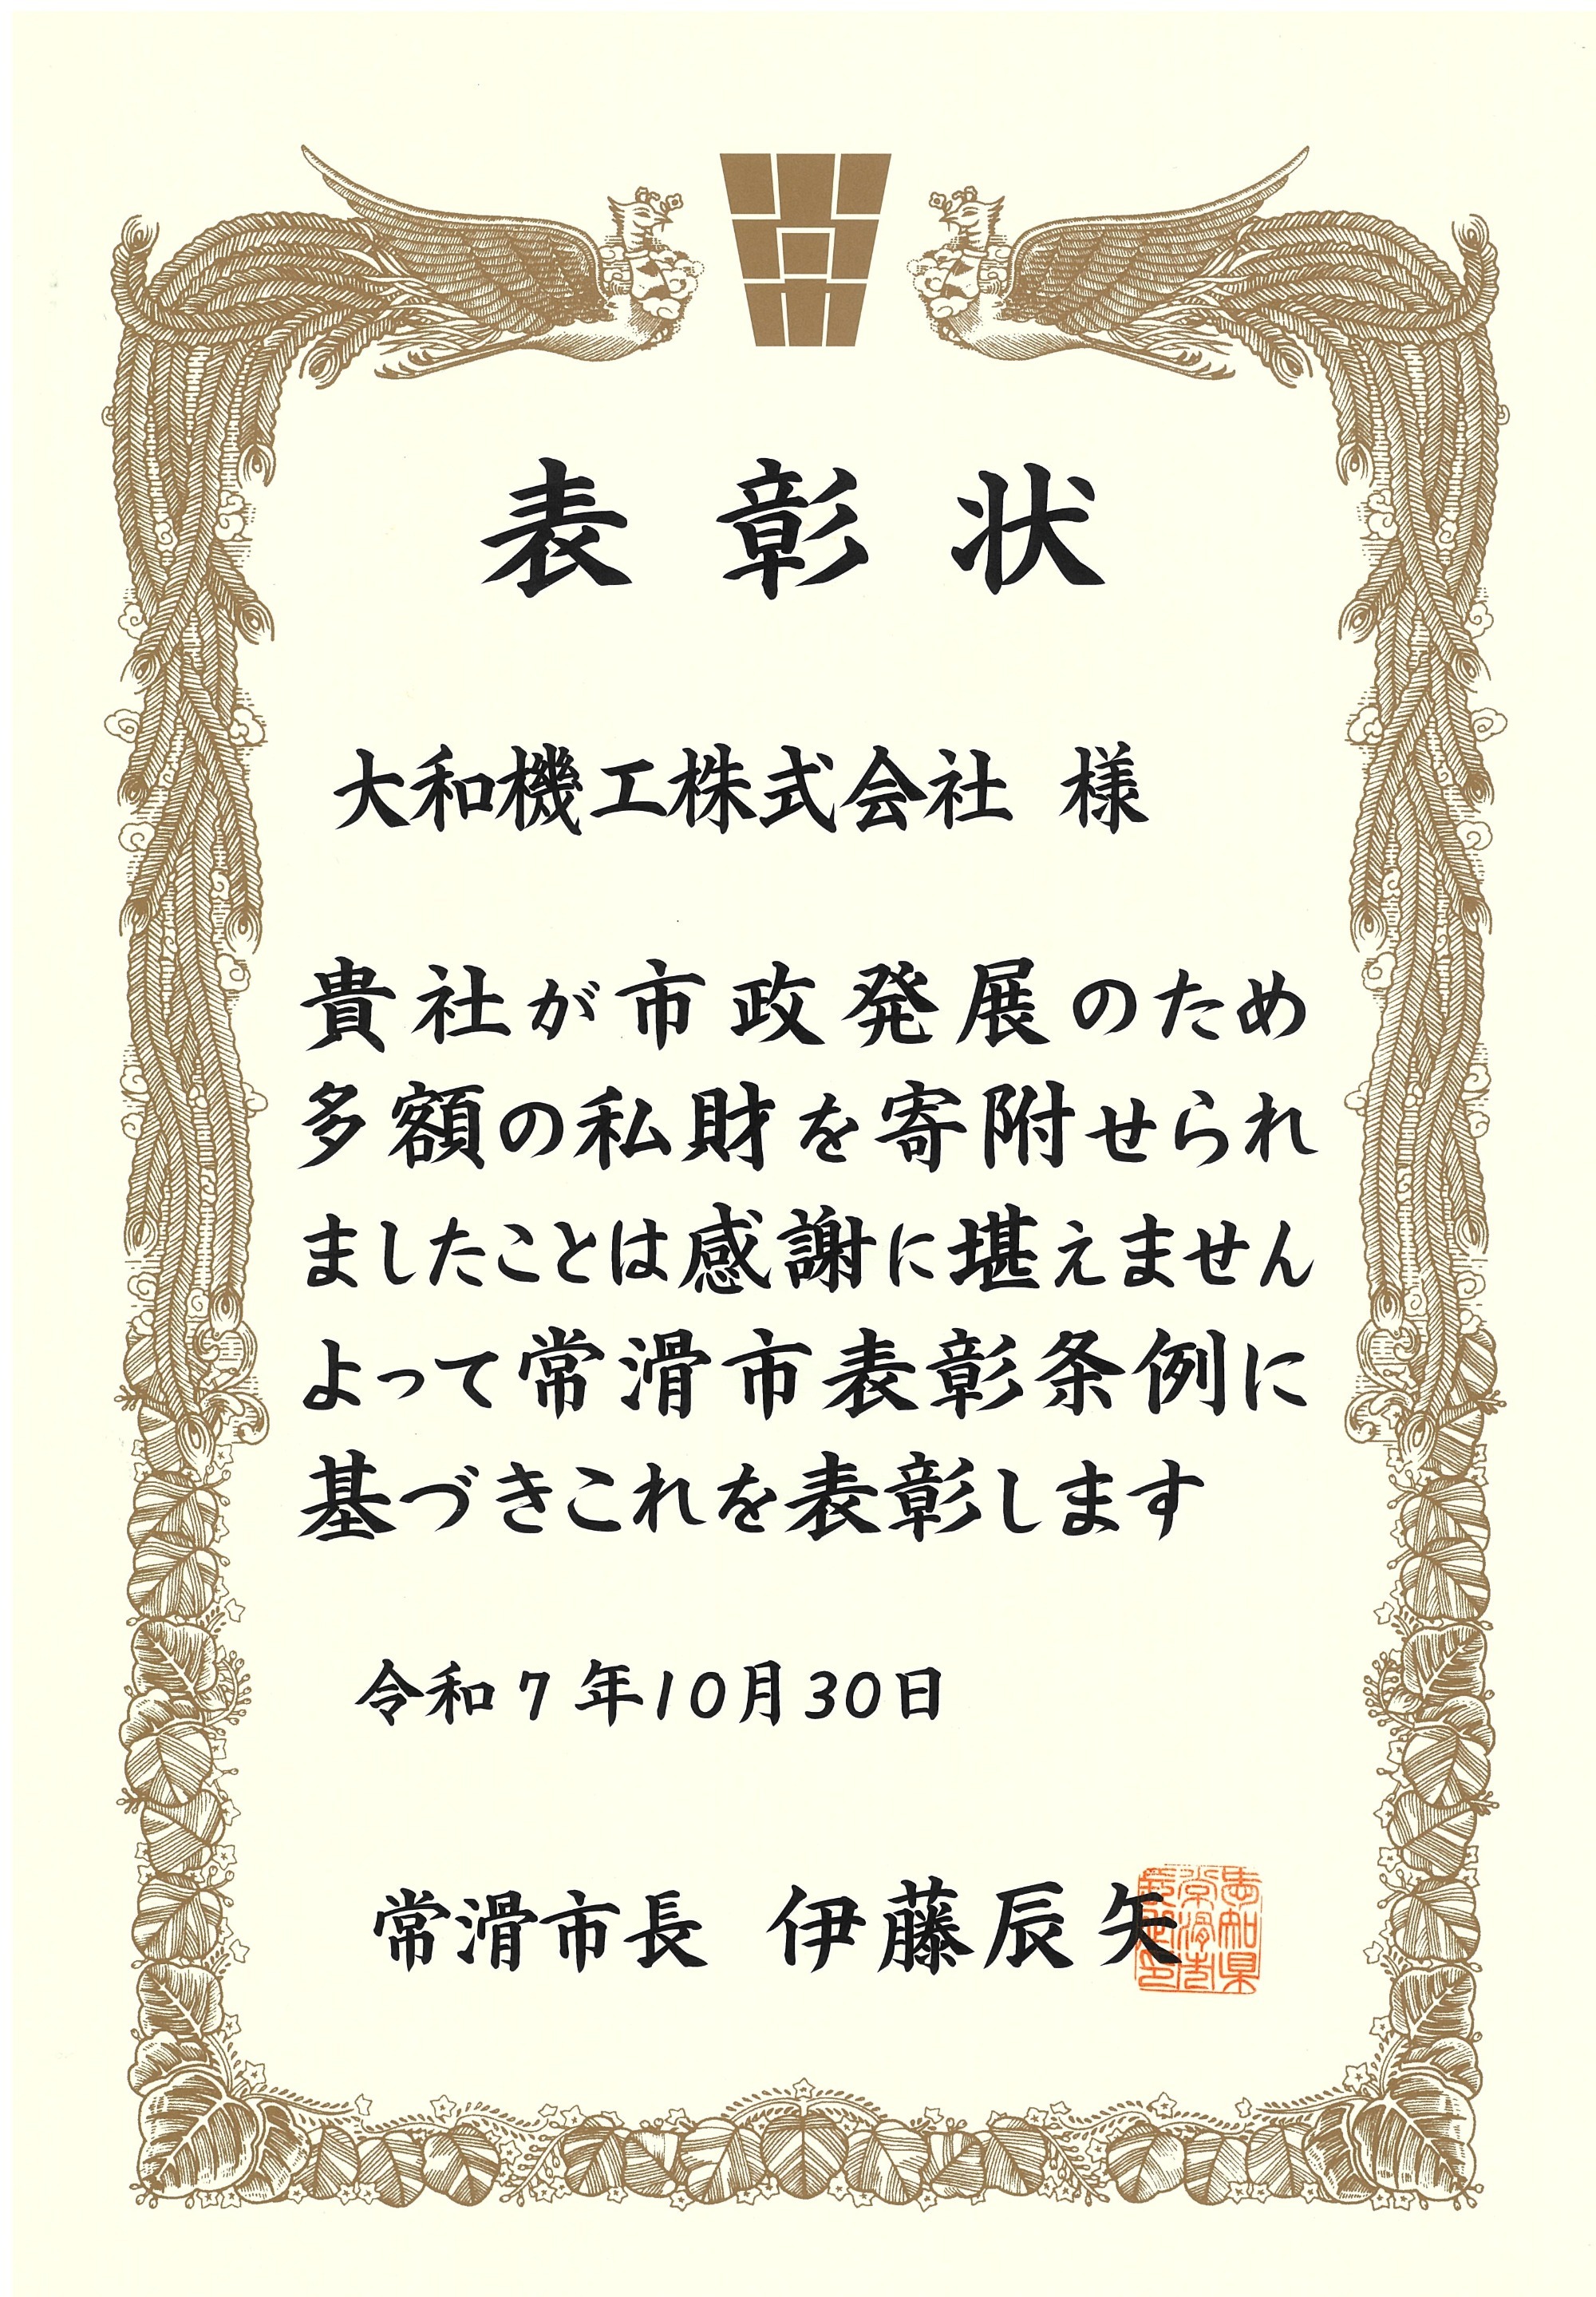 表彰状
大和機工株式会社 様
貴社が市政発展のため
多額の私財を寄附せられ
ましたことは感謝に堪えません
よって常滑市表彰条例に
基づきこれを表彰します
令和7年10月30日
常滑市長 伊藤辰矢